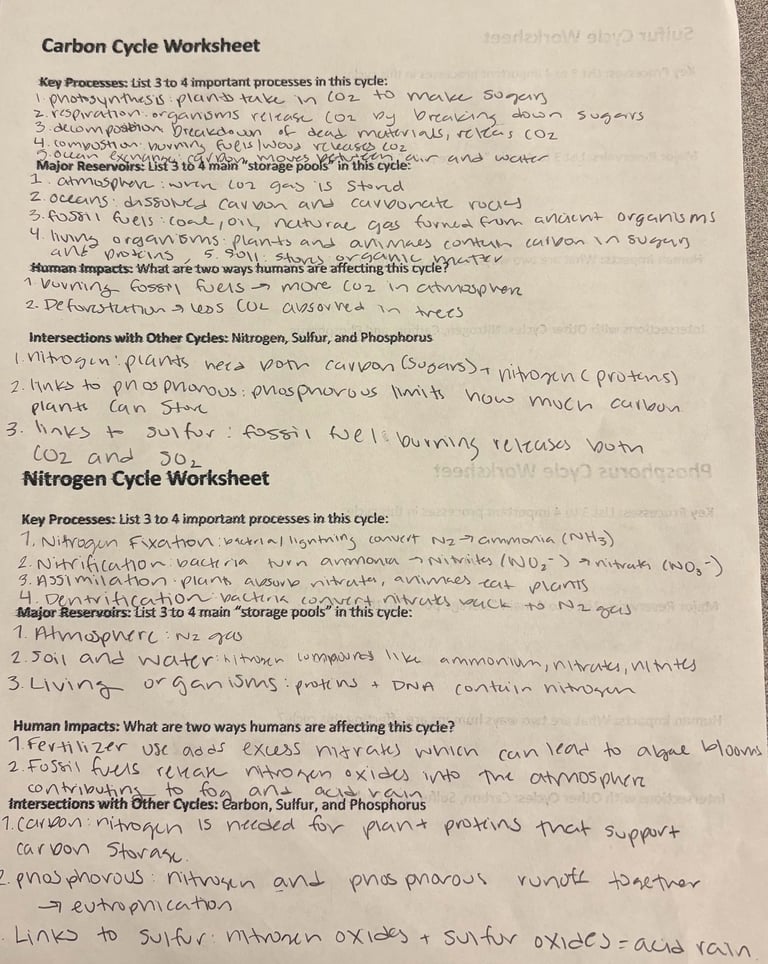 Carbon Cycle Worksheet
Key Processes: List 3 to 4 important processes in this cycle:
1. photosynthesis: plants take in CO2 to make sugars
2. respiration: organisms release CO2 by breaking down sugars
3. decomposition breakdown of dead materials, releas CO2
4. combustion: burning fuels/wood releases CO2
5. ocean exchange: carbon moves between air and water
Major Reservoirs: List 3 to 4 main "storage pools" in this cycle:
1. atmosphere: when CO2 gas is stored
2. oceans: dissolved carbon and carbonate rocks
3. fossil fuels: coal, oil, natural gas formed from ancient organisms
4. living organisms: plants and animals contain carbon in sugars
and proteins, 5. soil: stores organic matter
Human Impacts: What are two ways humans are affecting this cycle?
1. burning fossil fuels → more CO2 in atmosphere
2. Deforestation → less CO2 absorved in trees
Intersections with Other Cycles: Nitrogen, Sulfur, and Phosphorus
1. nitrogen: plants need both carbon (sugars) + nitrogen (proteins)
2. links to phosphorous: phosphorous limits how much carbon
plants can store
3. links to sulfur: fossil fuel burning releases both
CO2 and SO2
Nitrogen Cycle Worksheet
Key Processes: List 3 to 4 important processes in this cycle:
1. Nitrogen Fixation: bacteria/lightning convert N2 → ammonia (NH3)
2. Nitrification: bacteria turn ammonia → Nitrites (NO2-) → nitrates (NO3-)
3. Assimilation plants absorb nitrates, animals eat plants
4. Dentrification bacteria convert nitrates back to N2 gas
Major Reservoirs: List 3 to 4 main "storage pools" in this cycle:
1. Atmosphere: N2 gas
2. Soil and water: nitrogen compounds like ammonium, nitrates, nitrites
3. Living organisms: proteins + DNA contain nitrogen
Human Impacts: What are two ways humans are affecting this cycle?
1. Fertilizer use adds excess nitrates which can lead to algae blooms
2. Fossil fuels release nitrogen oxides into the atmosphere
contributing to fog and acid rain
Intersections with Other Cycles: Carbon, Sulfur, and Phosphorus
1. Carbon: nitrogen is needed for plant proteins that support
carbon storage.
2. phosphorous: nitrogen and phosphorous runoff together
→ eutrophication
. Links to sulfur: nitrogen oxides + sulfur oxides = acid rain